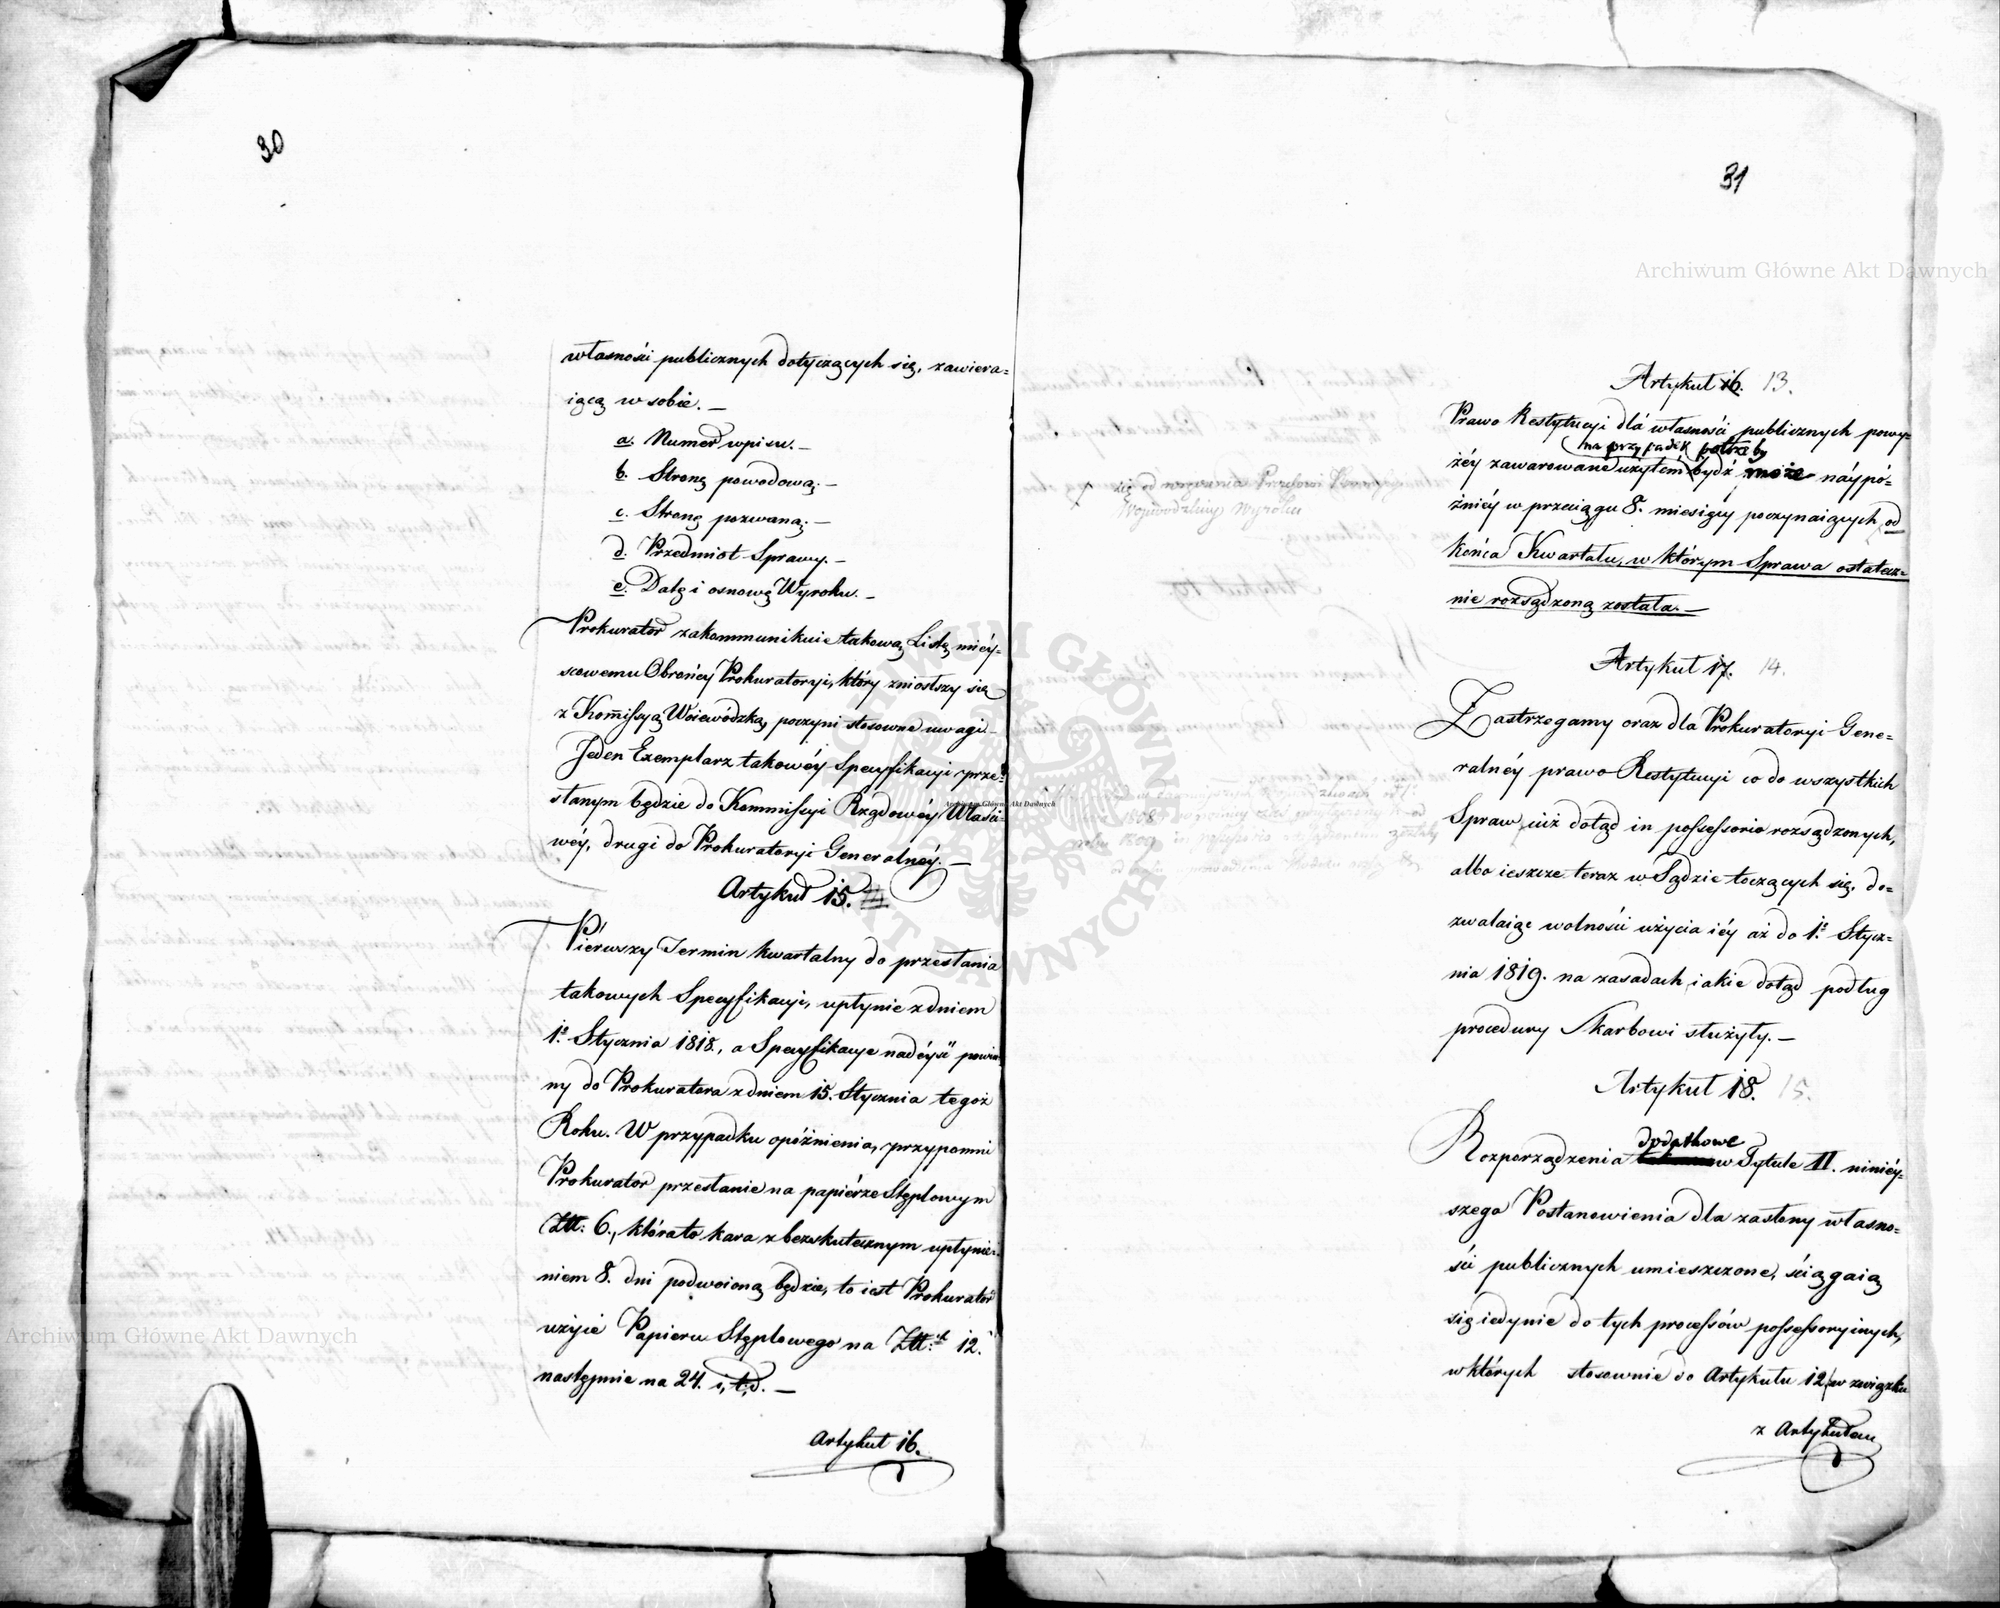 30
własności publicznych dotyczących się, zawiera=
iącą w sobie. —
a. Numer wpisu. —
b. Stronę powodową. —
c. Stronę pozwaną. —
d. Przedmiot Sprawy. —
e. Datę i osnowę Wyroku. —
Prokurator zakommunikuie takową Listę miéy=
scowemu Obrońcy Prokuratoryi, który zniosłszy się
z Kommissyą Woiewódzką, poczyni stosowne uwagi.
Jeden Exemplarz takowéy Specyfikacyi prze=
słanym będzie do Kommissyi Rządowéy Właści=
wéy, drugi do Prokuratoryi Generalnéy. —
Artykuł 15.
Piérwszy Termin kwartalny do przesłania
takowych Specyfikacyi, upłynie z dniem
1º Stycznia 1818., a Specyfikacye nadéyść powin
ny do Prokuratora z dniem 15. Stycznia tegoż
Roku. W przypadku opóźnienia, przypomni
Prokurator przesłanie na papiérze Stęplowym
Złł: 6., którato kara z bezskutecznym upłynie=
niem 8. dni podwoioną będzie, to iest Prokurator
użyie Papieru Stęplowego na Złł: 12.
następnie na 24. i, t, d. —
Artykuł 16.
31
Artykuł 16. 13.
Prawo Restytucyi dla własności publicznych powy=
na przypadek potrzeby
żéy zawarowane użytém bydź może náypó=
źniéy w przeciągu 8. miesięcy poczynaiących od
końca Kwartału, w którym Sprawa ostatecz=
nie rozsądzoną została. —
się od wezwania Prezesowi Kommissyi
Wojewódzkiey Wyroku
Artykuł 17. 14.
Zastrzegamy oraz dla Prokuratoryi Gene=
ralnéy prawo Restytucyi co do wszystkich
Spraw, iuż dotąd in possessorio rozsądzonych,
albo ieszcze teraz w Sądzie toczących się, do=
zwalaiąc wolności użycia iéy aż do 1º Stycz=
nia 1819. na zasadach, iakie dotąd podług
procedury Skarbowi służyły. —
Artykuł 18. 15.
dodatkowe
Rozporządzenia w Tytule II. niniéy=
szego Postanowienia dla zasłony własno=
ści publicznych umieszczone, ściągaią
się iedynie do tych processów possessoryinych,
w których stosownie do Artykułu 12 w związku
z Artykułem
Archiwum Główne Akt Dawnych
Archiwum Główne Akt Dawnych
Archiwum Główne Akt Dawnych
ARCHIWUM GŁÓWNE AKT DAWNYCH